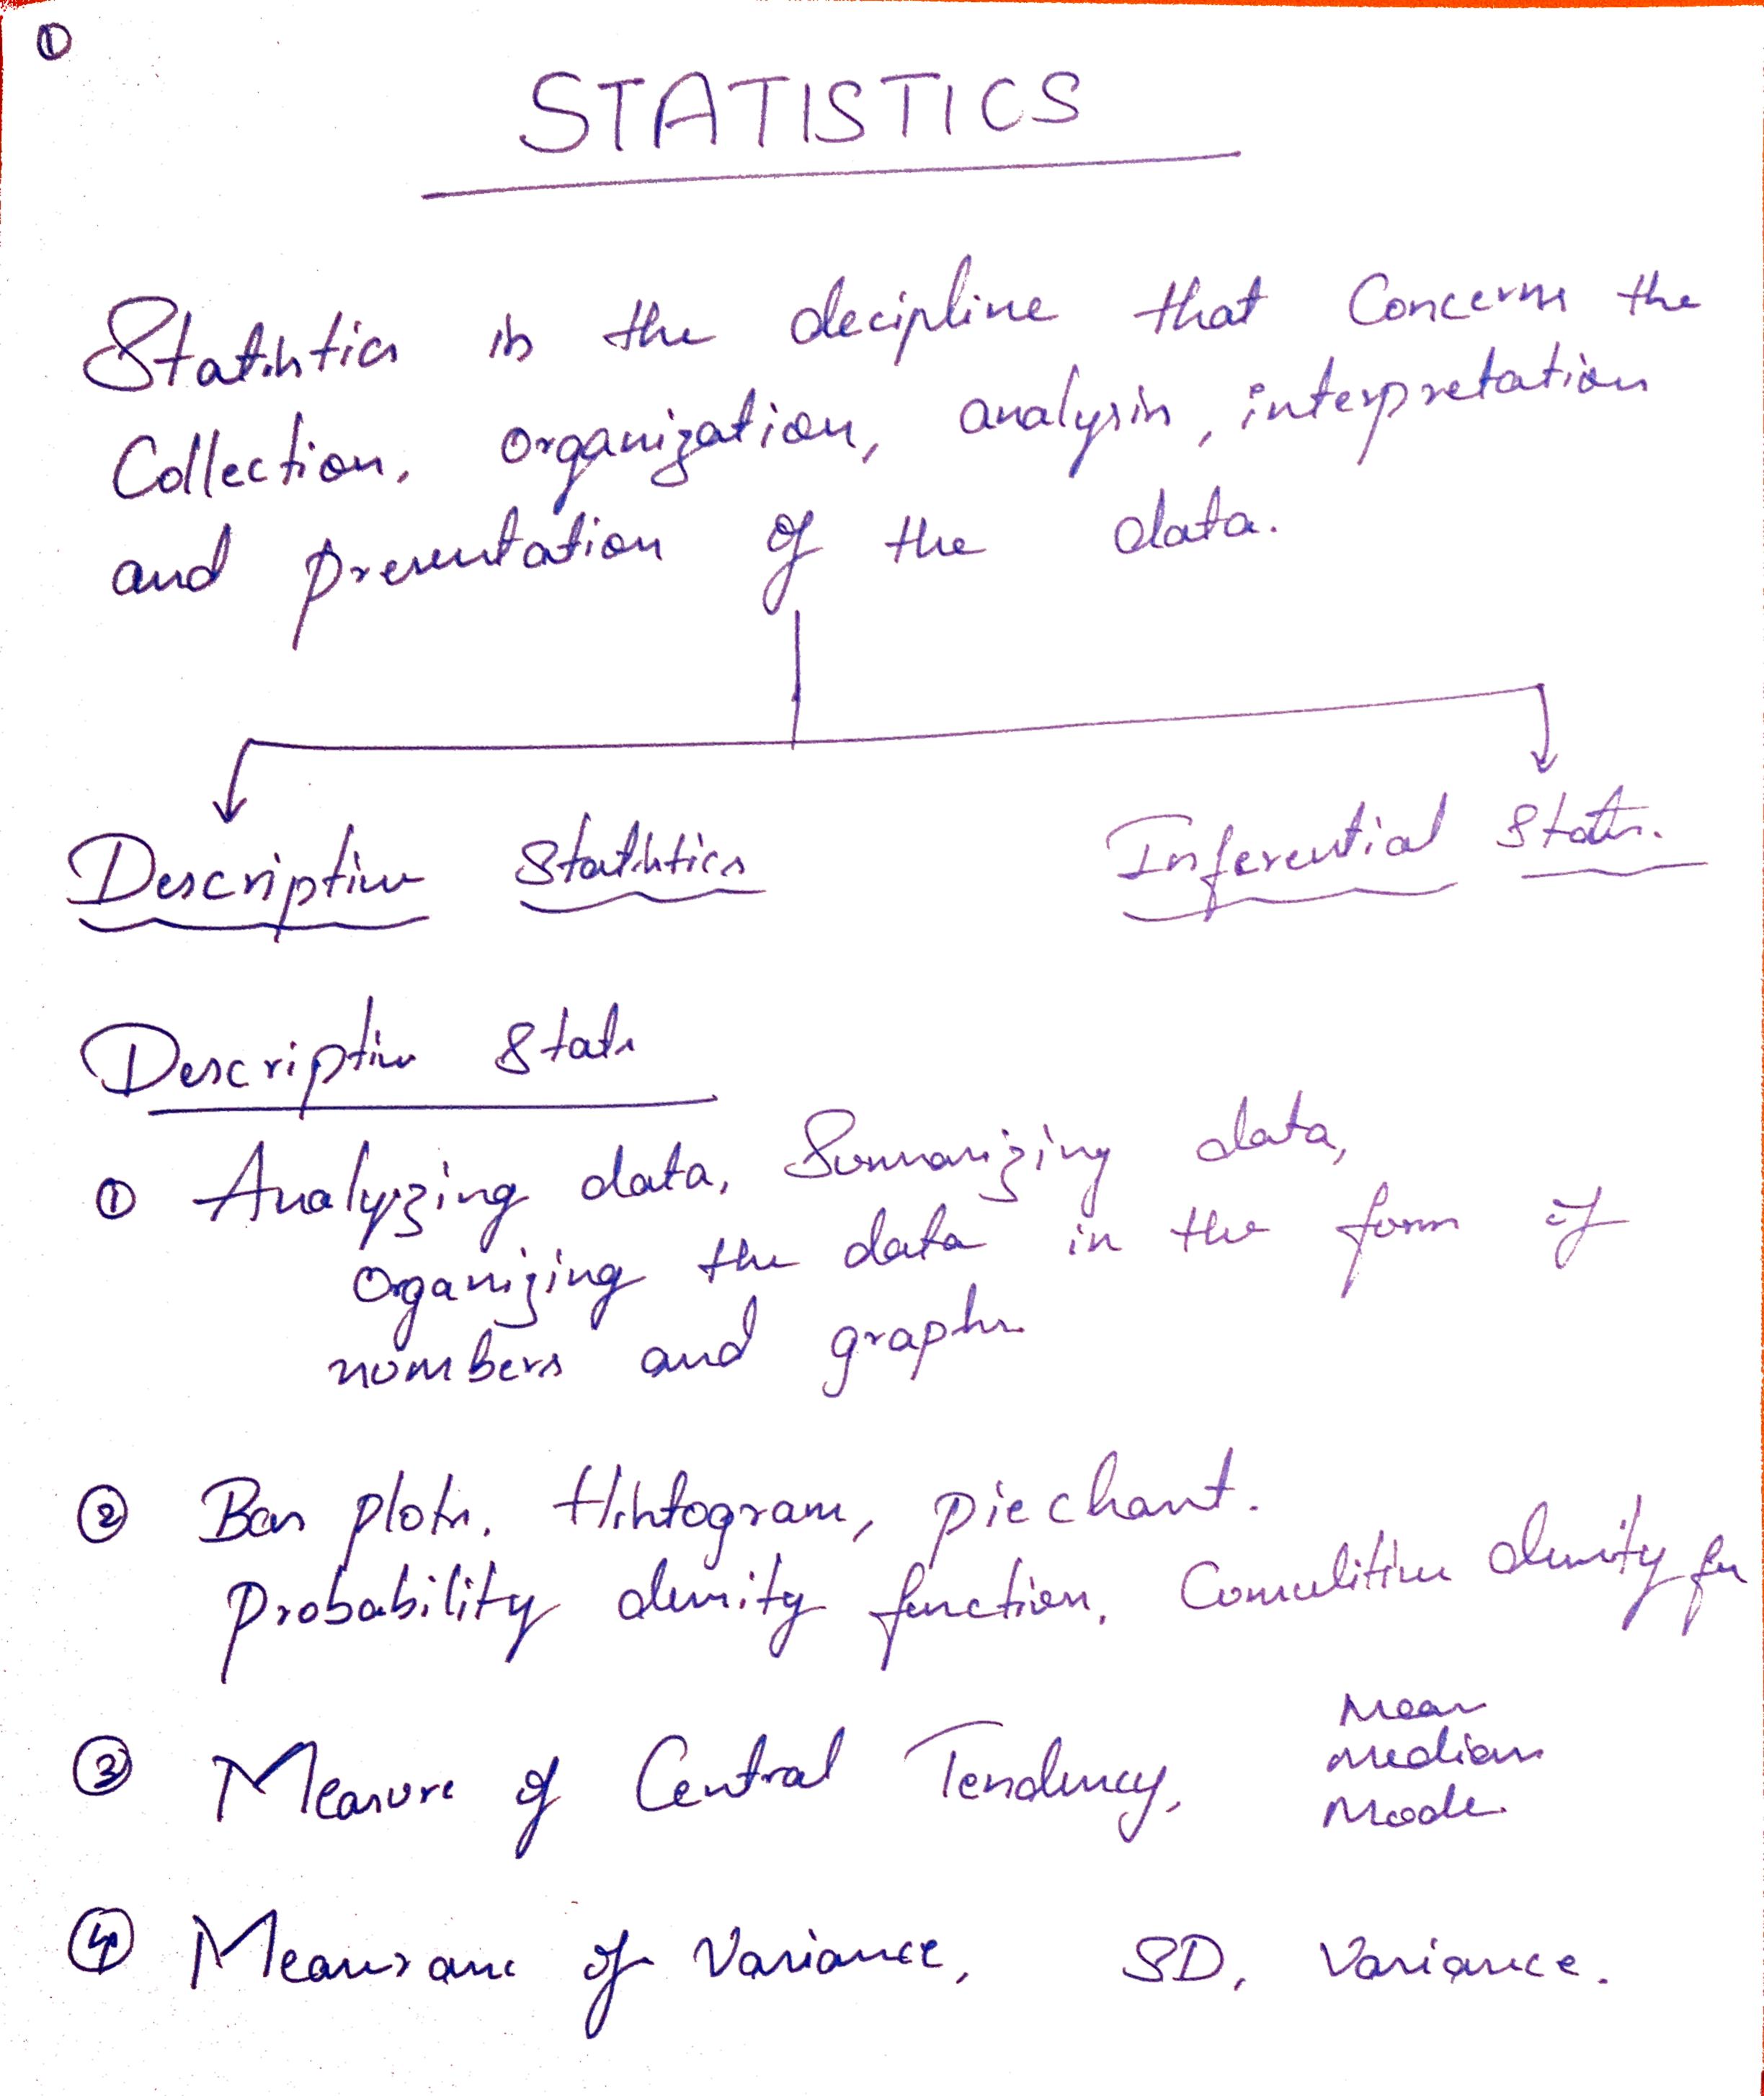 ①
STATISTICS
Statistics is the decipline that Concerns the
Collection, Organization, analysis, interpretation
and presentation of the data.
Descriptive Statistics Inferential Stats.
Descriptive Stats
① Analyzing data, Summarizing data,
Organizing the data in the form of
numbers and graphs
② Bar plots, Histogram, piechart.
Probability density function, Comulitive density fn
③ Measure of Central Tendency, Mean
Median
Mode.
④ Measure of Variance, SD, Variance.